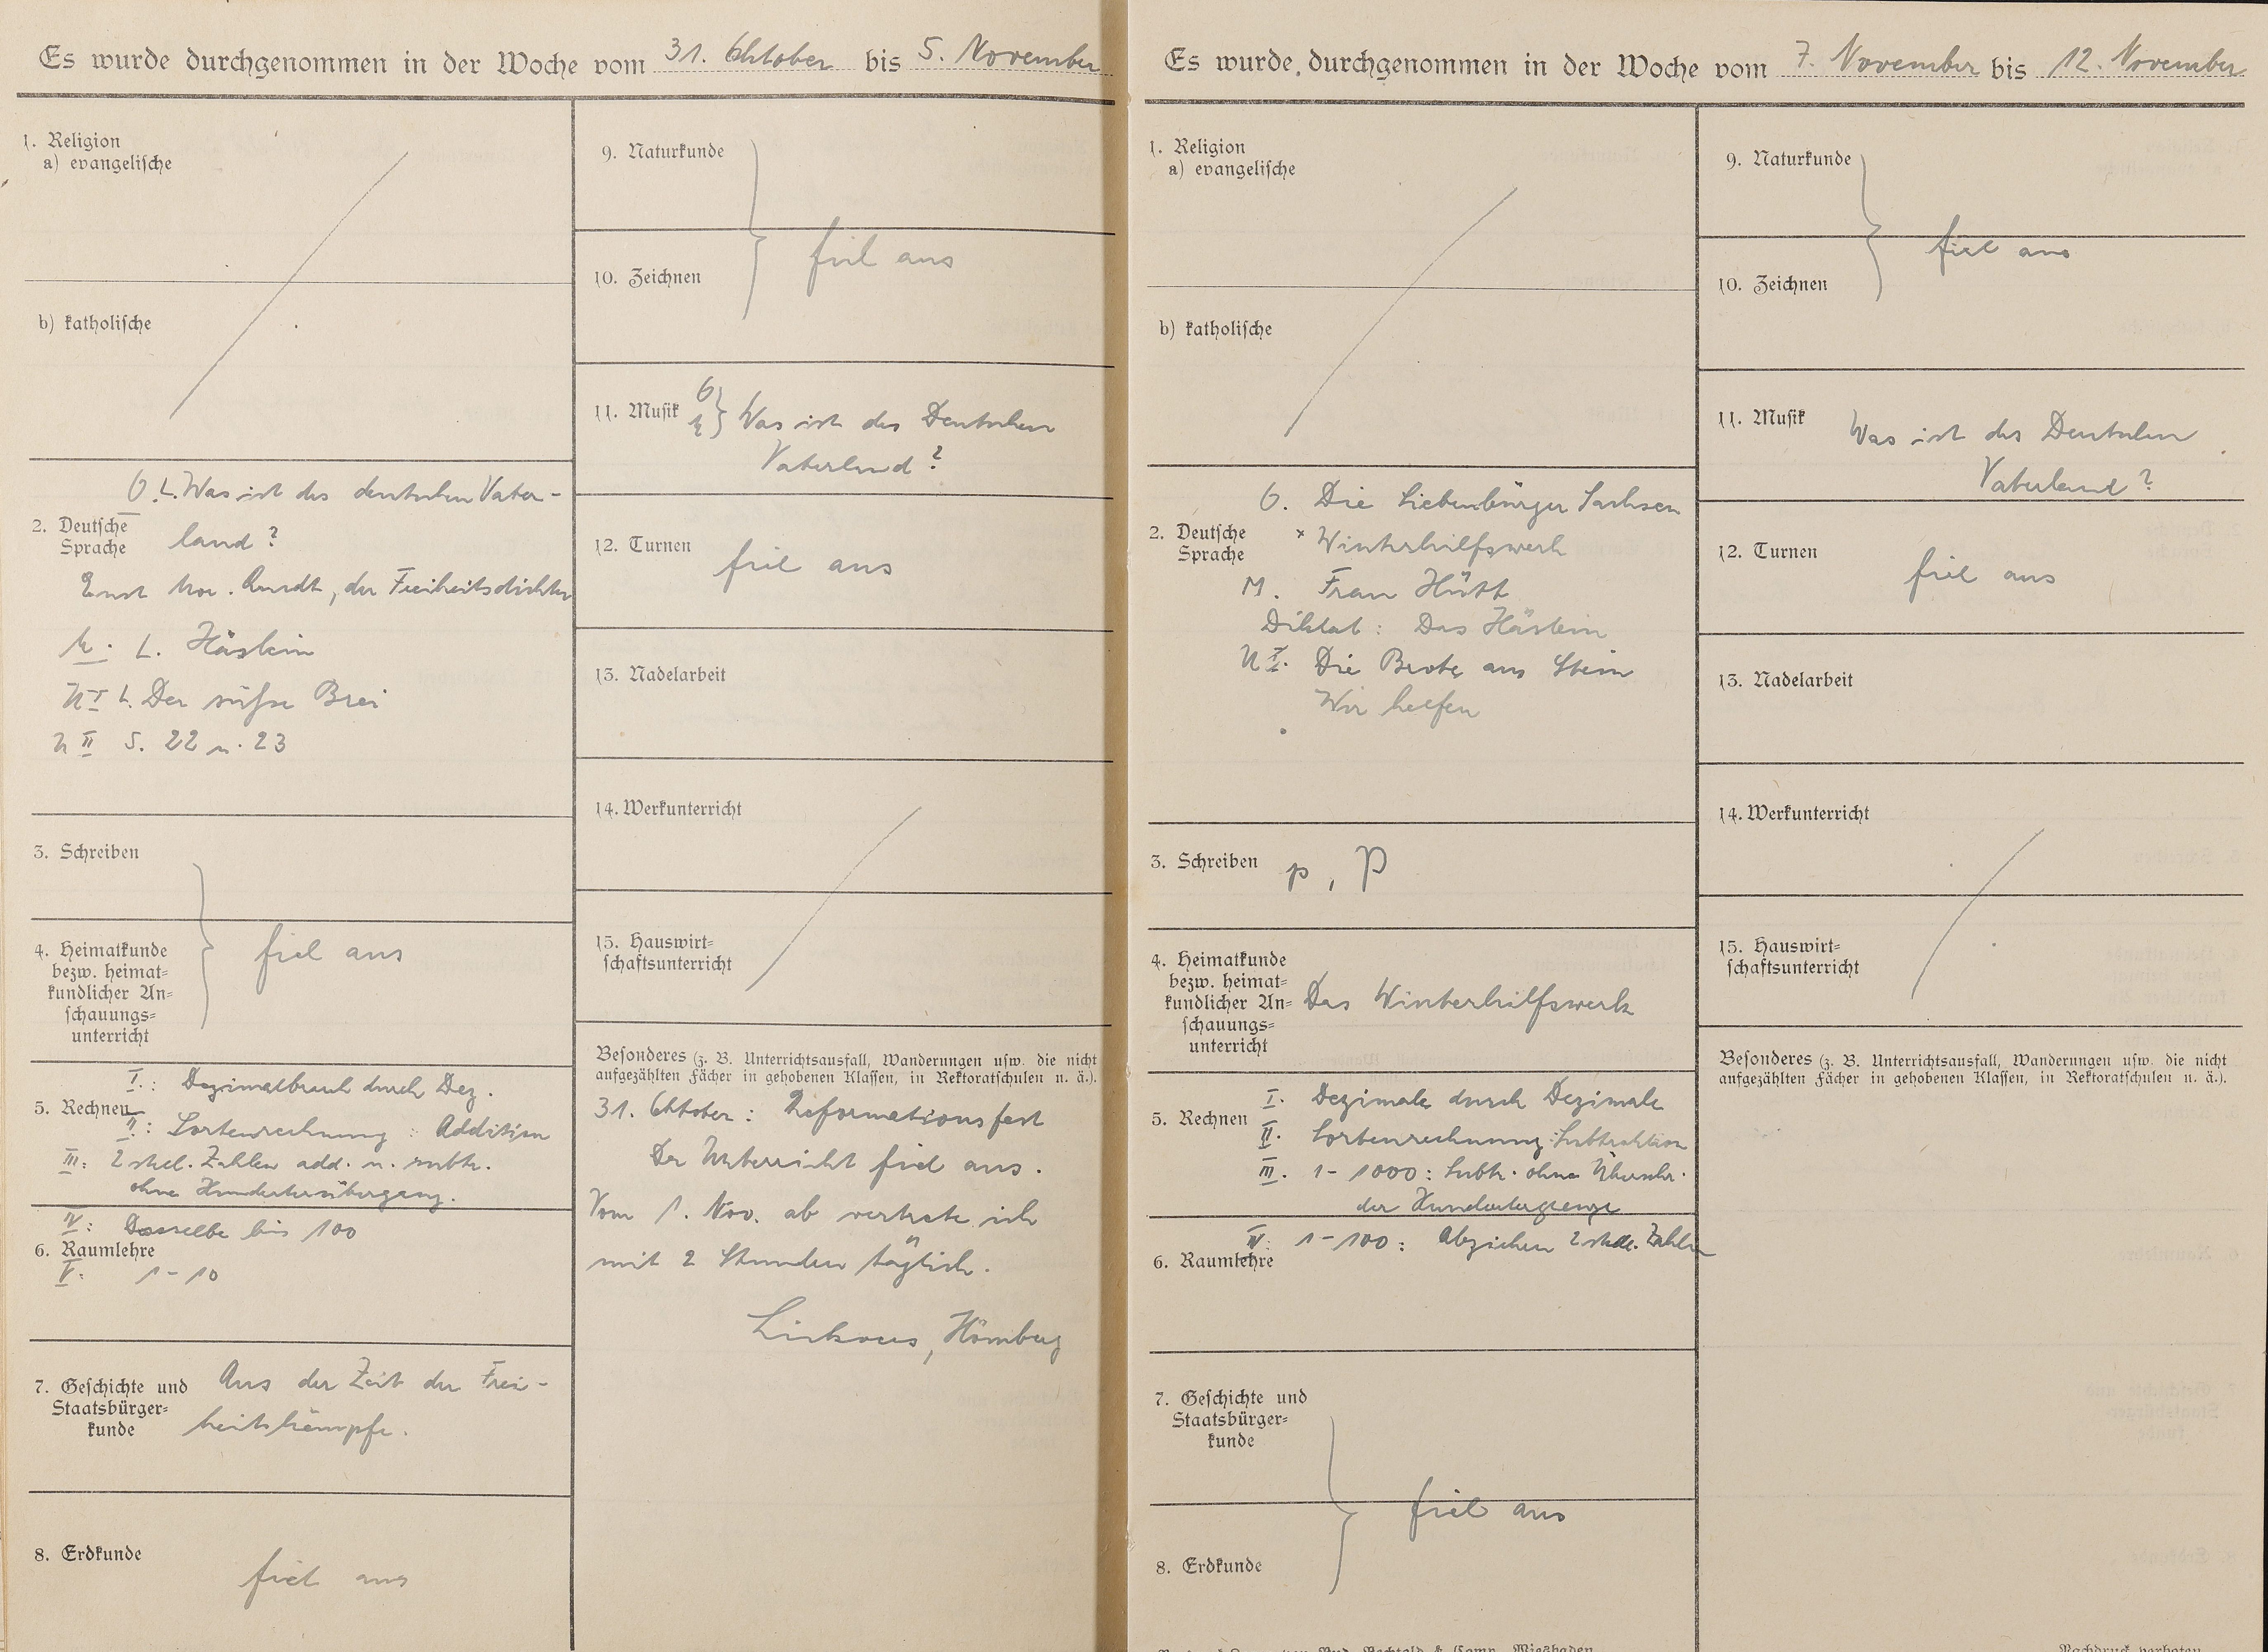 Es wurde durchgenommen in der Woche vom 31. Oktober bis 5. November
1. Religion
a) evangelische
b) katholische
O. L. Was ist des deutschen Vater-
2. Deutsche
Sprache
land?
Ernst Mor. Arndt, der Freiheitsdichter
M. L. Häslein
U I L. Der süße Brei
U II S. 22 u. 23
3. Schreiben
4. Heimatkunde
bezw. heimat=
kundlicher An=
schauungs=
unterricht
fiel aus
I.: Dezimalbruch durch Dez.
5. Rechnen
II.: Sortenrechnung: Addition
III: 2 stel. Zahlen add. u. subtr.
ohne Hunderterübergang.
IV: Dasselbe bis 100
6. Raumlehre
V: 1-10
7. Geschichte und
Staatsbürger=
kunde
Aus der Zeit der Frei-
heitskämpfe.
8. Erdkunde
fiel aus
9. Naturkunde
10. Zeichnen
fiel aus
11. Musik O M } Was ist des Deutschen
Vaterland?
12. Turnen
fiel aus
13. Nadelarbeit
14. Werkunterricht
15. Hauswirt=
schaftsunterricht
Besonderes (z. B. Unterrichtsausfall, Wanderungen usw. die nicht
aufgezählten Fächer in gehobenen Klassen, in Rektoratschulen u. ä.).
31. Oktober: Reformationsfest
Der Unterricht fiel aus.
Vom 1. Nov. ab vertrete ich
mit 2 Stunden täglich.
Hömberg
Es wurde durchgenommen in der Woche vom 7. November bis 12. November
1. Religion
a) evangelische
b) katholische
O. Die Siebenbürger Sachsen
2. Deutsche
Sprache
x Winterhilfswerk
M. Frau Hütt
Diktat: Das Häslein
U I. Die Brote aus Stein
Wir helfen
3. Schreiben p, P
4. Heimatkunde
bezw. heimat=
kundlicher An=
schauungs=
unterricht
Das Winterhilfswerk
I. Dezimale durch Dezimale
5. Rechnen
II. Sortenrechnung: Subtraktion
III. 1-1000: Subtr. ohne Überschr.
der Hundertergrenze
IV: 1-100: Abziehen 2 stell. Zahlen
6. Raumlehre
7. Geschichte und
Staatsbürger=
kunde
fiel aus
8. Erdkunde
9. Naturkunde
10. Zeichnen
fiel aus
11. Musik Was ist des Deutschen
Vaterland?
12. Turnen
fiel aus
13. Nadelarbeit
14. Werkunterricht
15. Hauswirt=
schaftsunterricht
Besonderes (z. B. Unterrichtsausfall, Wanderungen usw. die nicht
aufgezählten Fächer in gehobenen Klassen, in Rektoratschulen u. ä.).